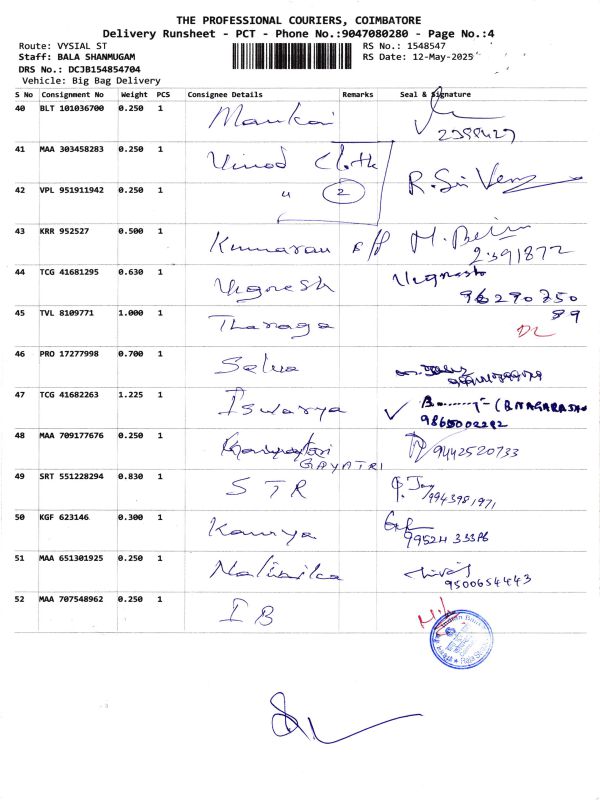 THE PROFESSIONAL COURIERS, COIMBATORE
Delivery Runsheet - PCT - Phone No.:9047080280 - Page No.:4
Route: VYSIAL ST
RS No.: 1548547
Staff: BALA SHANMUGAM
RS Date: 12-May-2025
DRS No.: DCJB154854704
Vehicle: Big Bag Delivery
S No Consignment No Weight PCS Consignee Details Remarks Seal & Signature
40 BLT 101036700 0.250 1
2398427
41 MAA 303458283 0.250 1 Vinod Cloth
R. Sri
42 VPL 951911942 0.250 1 " 2
43 KRR 952527 0.500 1 Kumaran
2391872
44 TCG 41681295 0.630 1 Vignesh Vignesh
96290750
89
45 TVL 8109771 1.000 1 Tharaga
DL
46 PRO 17277998 0.700 1 Selva
47 TCG 41682263 1.225 1 Iswarya
48 MAA 709177676 0.250 1 GAYATRI 9442520733
49 SRT 551228294 0.830 1 STR
9943981971
50 KGF 623146 0.300 1 Kaviya
51 MAA 651301925 0.250 1
9500654443
52 MAA 707548962 0.250 1 IB
Indian Bank